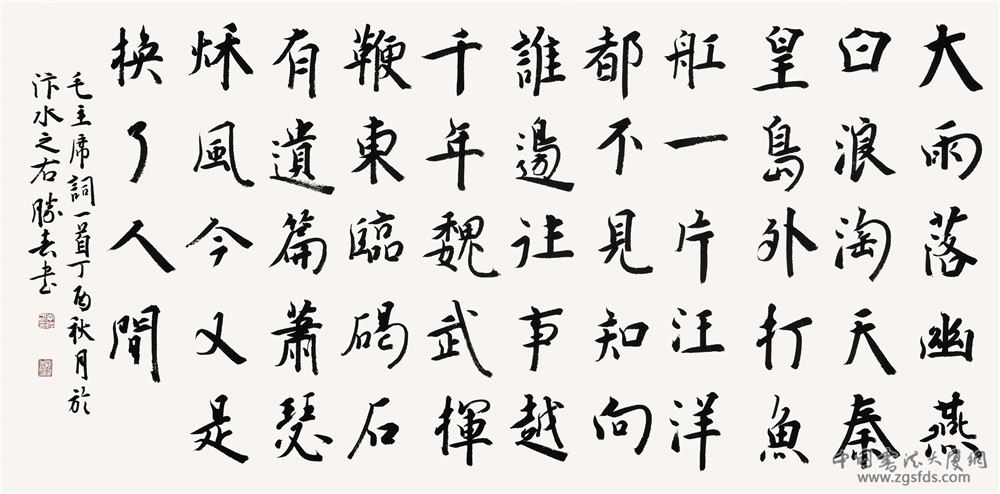 大雨落幽燕
白浪淘天秦
皇島外打魚
舡一片汪洋
都不見知向
誰邊往事越
千年魏武揮
鞭東臨碣石
有遺篇蕭瑟
秌風今又是
換了人間
毛主席詞一首丁酉秋月於
汴水之右勝春書
中國書法大廈網
www.zgsfds.com